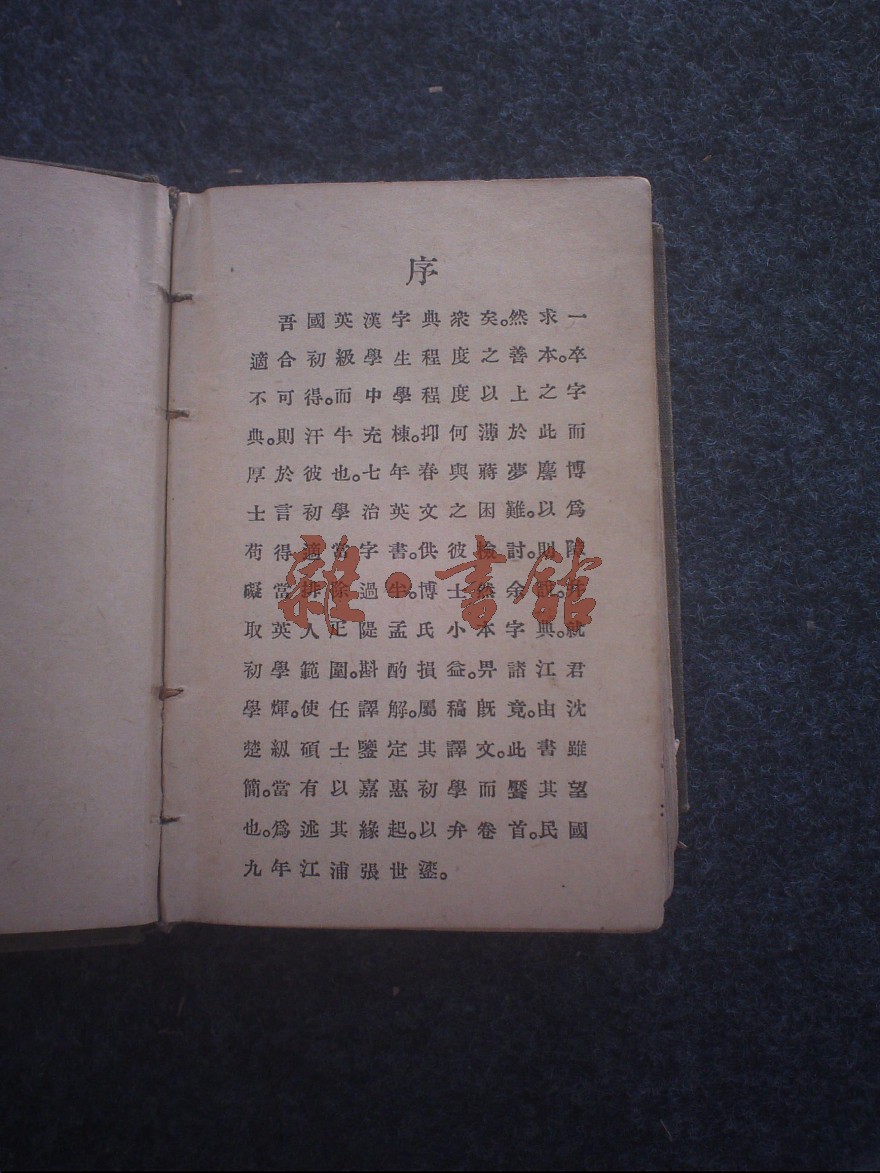 序
吾國英漢字典衆矣。然求一
適合初級學生程度之善本。卒
不可得。而中學程度以上之字
典。則汗牛充棟。抑何薄於此而
厚於彼也。七年春與蔣夢麐博
士言初學治英文之困難。以爲
苟得適當字書。供彼檢討。則障
礙當排除過半。博士然余說。并
取英人正隄孟氏小本字典。就
初學範圍。斟酌損益。畀諸江君
學煇。使任譯解。屬稿旣竟。由沈
楚紉碩士鑒定其譯文。此書雖
簡。當有以嘉惠初學而饜其望
也。爲述其緣起。以弁卷首。民國
九年江浦張世鎏。
雜·書館